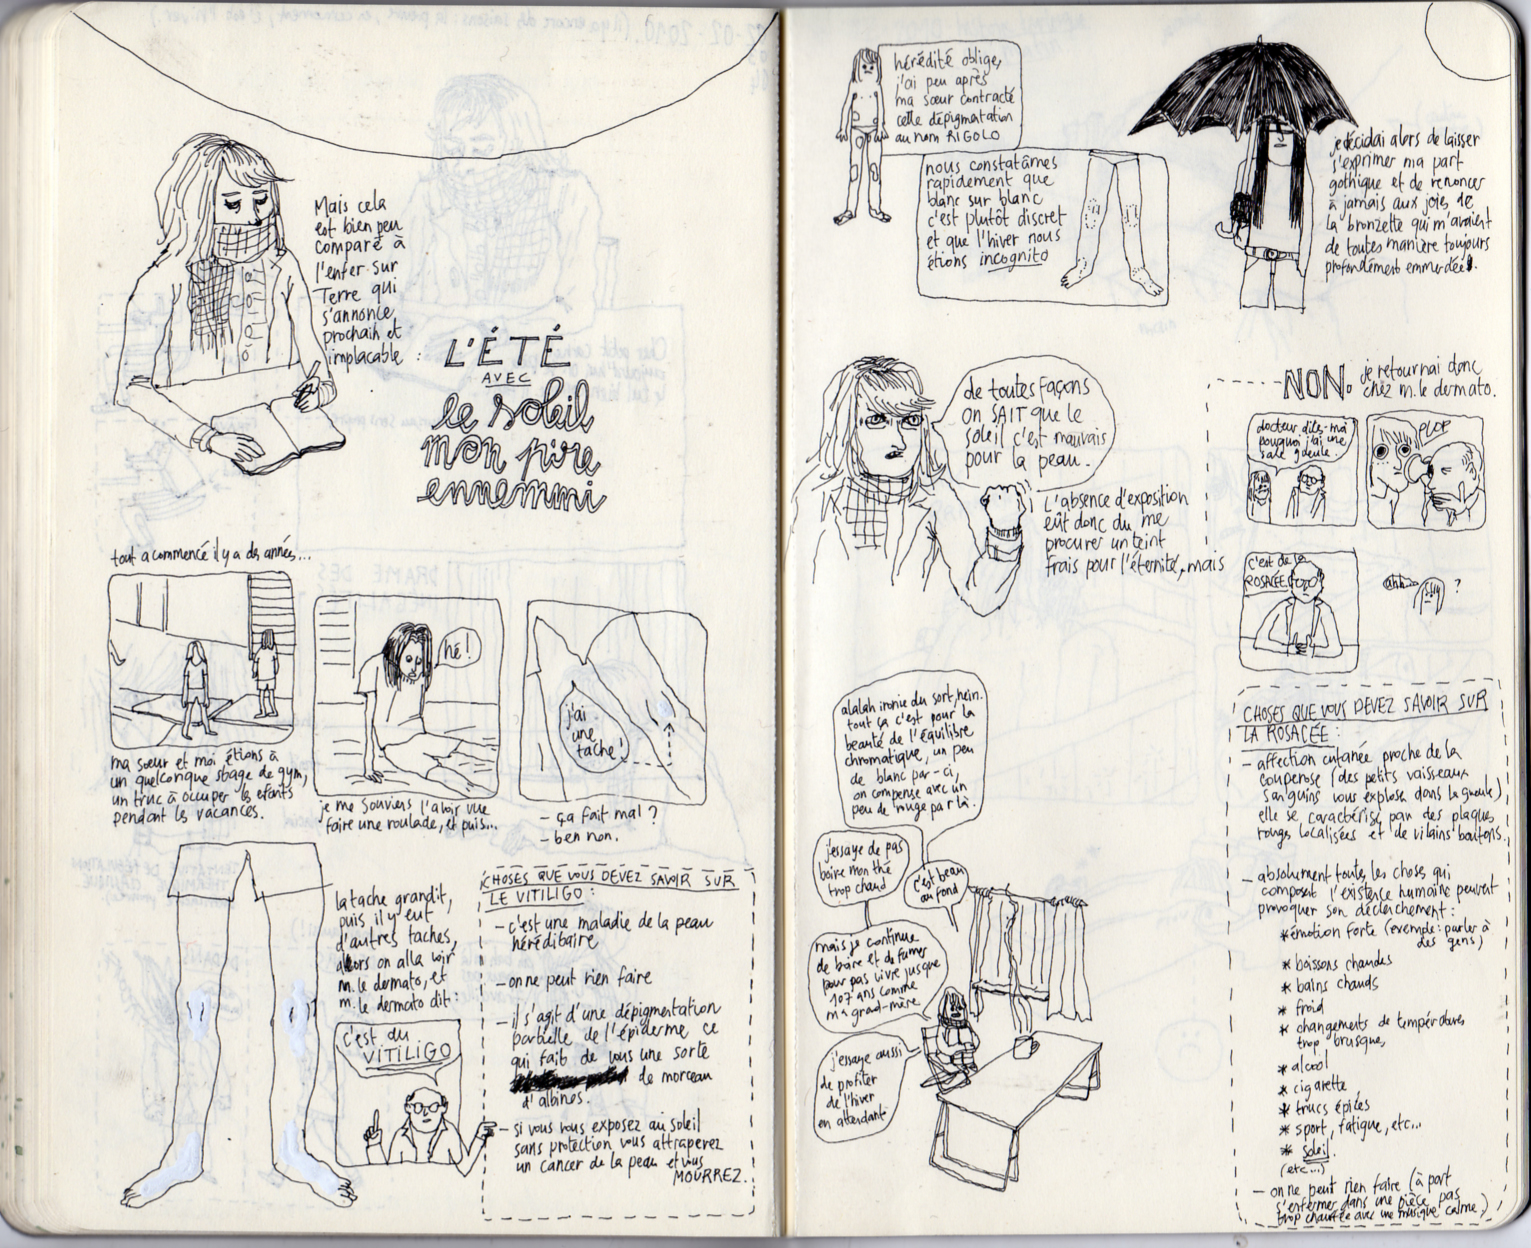 Mais cela
est bien peu
comparé à
l'enfer sur
Terre qui
s'annonce
prochain et
implacable :
L'ÉTÉ
AVEC
le soleil
mon pire
ennemmi
tout a commencé il y a des années...
ma sœur et moi étions à
un quelconque stage de gym,
un truc à occuper les efants
pendant les vacances.
hé !
je me souviens l'avoir vue
faire une roulade, et puis...
j'ai
une
tache !
- ça fait mal ?
- ben non.
la tache grandit,
puis il y eut
d'autres taches,
alors on alla voir
m. le dermato, et
m. le dermato dit :
c'est du
VITILIGO
CHOSES QUE VOUS DEVEZ SAVOIR SUR
LE VITILIGO :
- c'est une maladie de la peau
héréditaire
- on ne peut rien faire
- il s'agit d'une dépigmentation
partielle de l'épiderme ce
qui fait de vous une sorte
de morceau
d'albinos.
- si vous vous exposez au soleil
sans protection vous attraperez
un cancer de la peau et vous
MOURREZ.
hérédité oblige,
j'ai peu après
ma sœur contracté
cette dépigmentation
au nom RIGOLO
nous constatâmes
rapidement que
blanc sur blanc
c'est plutôt discret
et que l'hiver nous
étions incognito
je décidai alors de laisser
s'exprimer ma part
gothique et de renoncer
à jamais aux joies de
la bronzette qui m'avaient
de toutes manière toujours
profondément emmerdée.
de toutes façons
on SAIT que le
soleil c'est mauvais
pour la peau.
L'absence d'exposition
eût donc du me
procurer un teint
frais pour l'éternité, mais
NON. je retournai donc
chez m. le dermato.
docteur, dites-moi
pourquoi j'ai une
sale gueule.
PLOP
c'est de la
ROSACÉE.
ahh... ?
alalah ironie du sort, hein.
tout ça c'est pour la
beauté de l'équilibre
chromatique, un peu
de blanc par-ci,
on compense avec un
peu de rouge par là.
j'essaye de pas
boire mon thé
trop chaud
c'est beau
au fond
mais je continue
de boire et de fumer
pour pas vivre jusque
107 ans comme
ma grand-mère
j'essaye aussi
de profiter
de l'hiver
en attendant
CHOSES QUE VOUS DEVEZ SAVOIR SUR
LA ROSACÉE :
- affection cutanée proche de la
couperose (des petits vaisseaux
sanguins vous explose dans la gueule)
elle se caractérise par des plaques
rouges localisées et de vilains boutons.
- absolument toutes les choses qui
composent l'existence humaine peuvent
provoquer son déclenchement :
* émotion forte (exemple : parler à
des gens)
* boissons chaudes
* bains chauds
* froid
* changements de températures
trop brusque,
* alcool
* cigarette
* trucs épicés
* sport, fatigue, etc...
* soleil.
(etc...)
- on ne peut rien faire (à part
s'enfermer dans une pièce pas
trop chauffée avec une musique calme.)